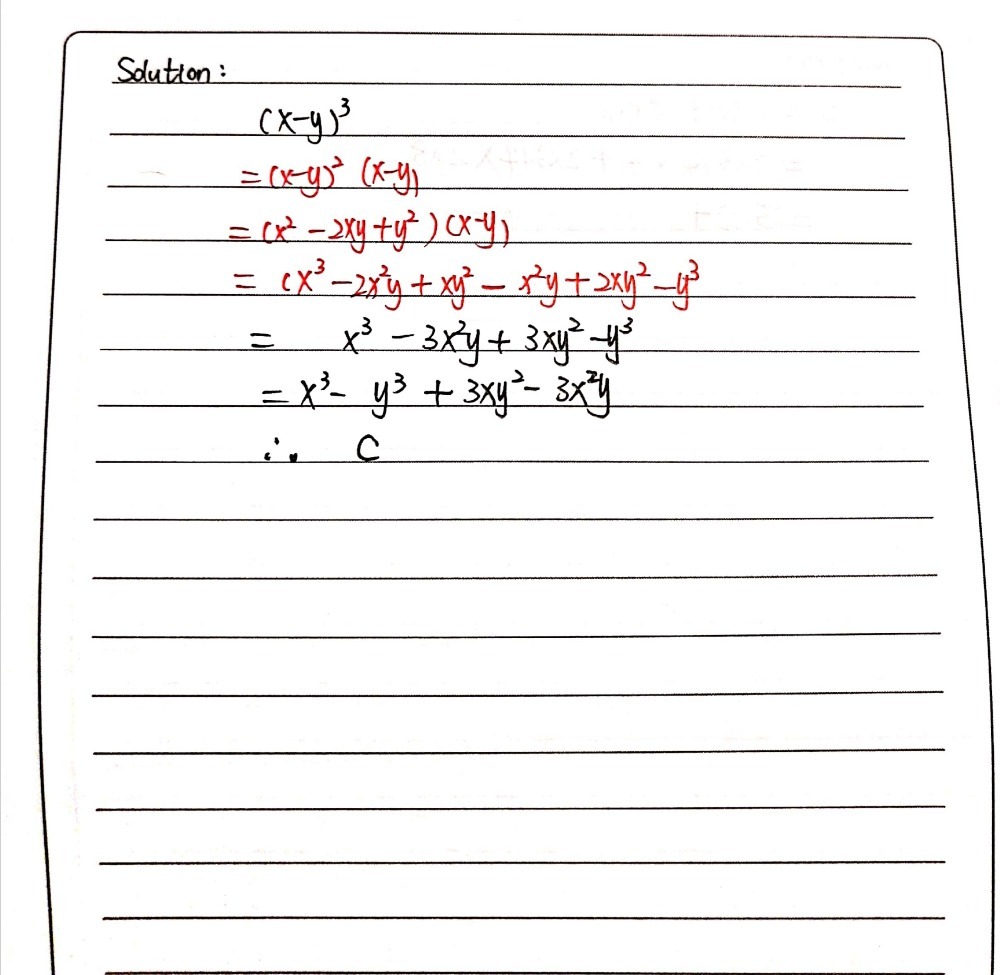 Solution:
(x-y)³
= (x-y)² (x-y)
= (x² - 2xy + y²) (x-y)
= (x³ - 2x²y + xy² - x²y + 2xy² - y³
= x³ - 3x²y + 3xy² - y³
= x³ - y³ + 3xy² - 3x²y
∴ C